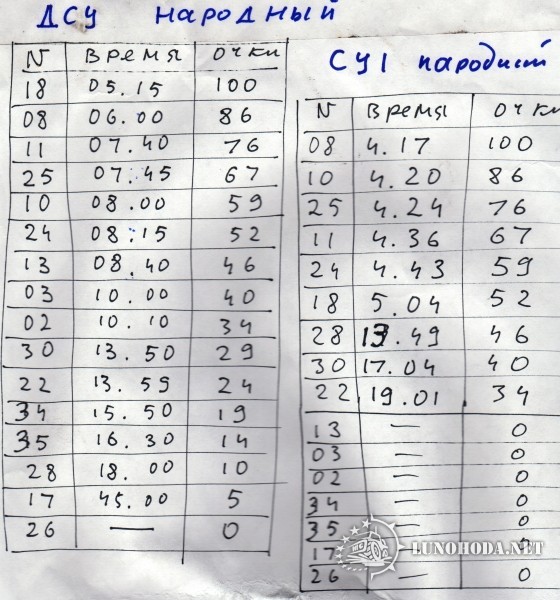 ДСУ народный
N время очки
18 05.15 100
08 06.00 86
11 07.40 76
25 07.45 67
10 08.00 59
24 08.15 52
13 08.40 46
03 10.00 40
02 10.10 34
30 13.50 29
22 13.59 24
34 15.50 19
35 16.30 14
28 18.00 10
17 45.00 5
26 — 0
СУ1 народный
N время очки
08 4.17 100
10 4.20 86
25 4.24 76
11 4.36 67
24 4.43 59
18 5.04 52
28 13.49 46
30 17.04 40
22 19.01 34
13 — 0
03 — 0
02 — 0
34 — 0
35 — 0
17 0
26 — 0
LUNOHODA.NET